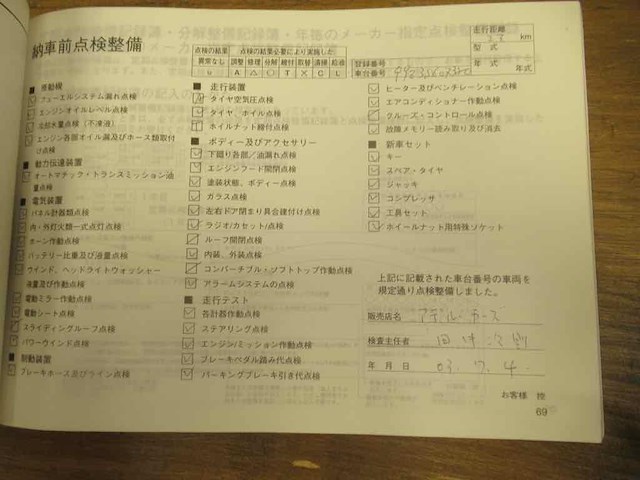 納車前点検整備
点検の結果 点検の結果必要により実施した
異常なし 調整 修理 分解 締付 取替 清掃 給油
レ A △ ○ T × C L
登録番号
車台番号
走行距離 km
型式
年式 年式
■ 原動機
フューエルシステム漏れ点検
エンジンオイルレベル点検
冷却水量点検（不凍液）
エンジン各部オイル漏及びホース類取付
け点検
■ 動力伝達装置
オートマチック・トランスミッション油
量点検
■ 電気装置
パネル計器類点検
内・外灯火類一式点灯点検
ホーン作動点検
バッテリー比重及び液量点検
ウインド、ヘッドライトウォッシャー
液量及び作動点検
電動ミラー作動点検
電動シート点検
スライディングルーフ点検
パワーウインド点検
■ 制動装置
ブレーキホース及びライン点検
■ 走行装置
タイヤ空気圧点検
タイヤ、ホイル点検
ホイルナット締付点検
■ ボディー及びアクセサリー
下廻り各部／油漏れ点検
エンジンフード開閉点検
塗装状態、ボディー点検
ガラス点検
左右ドア閉まり具合建付け点検
ラジオ/カセット/点検
ルーフ開閉点検
内装、外装点検
コンバーチブル・ソフトトップ作動点検
アラームシステムの点検
■ 走行テスト
各計器作動点検
ステアリング点検
エンジン/ミッション作動点検
ブレーキペダル踏み代点検
パーキングブレーキ引き代点検
ヒーター及びベンチレーション点検
エアコンディショナー作動点検
クルーズ・コントロール点検
故障メモリー読み取り及び消去
■ 新車セット
キー
スペア・タイヤ
ジャッキ
コンプレッサ
工具セット
ホイールナット用特殊ソケット
上記に記載された車台番号の車両を
規定通り点検整備しました。
販売店名 アデル・カース
検査主任者
年 月 日 03. 7. 4.
お客様 控
69